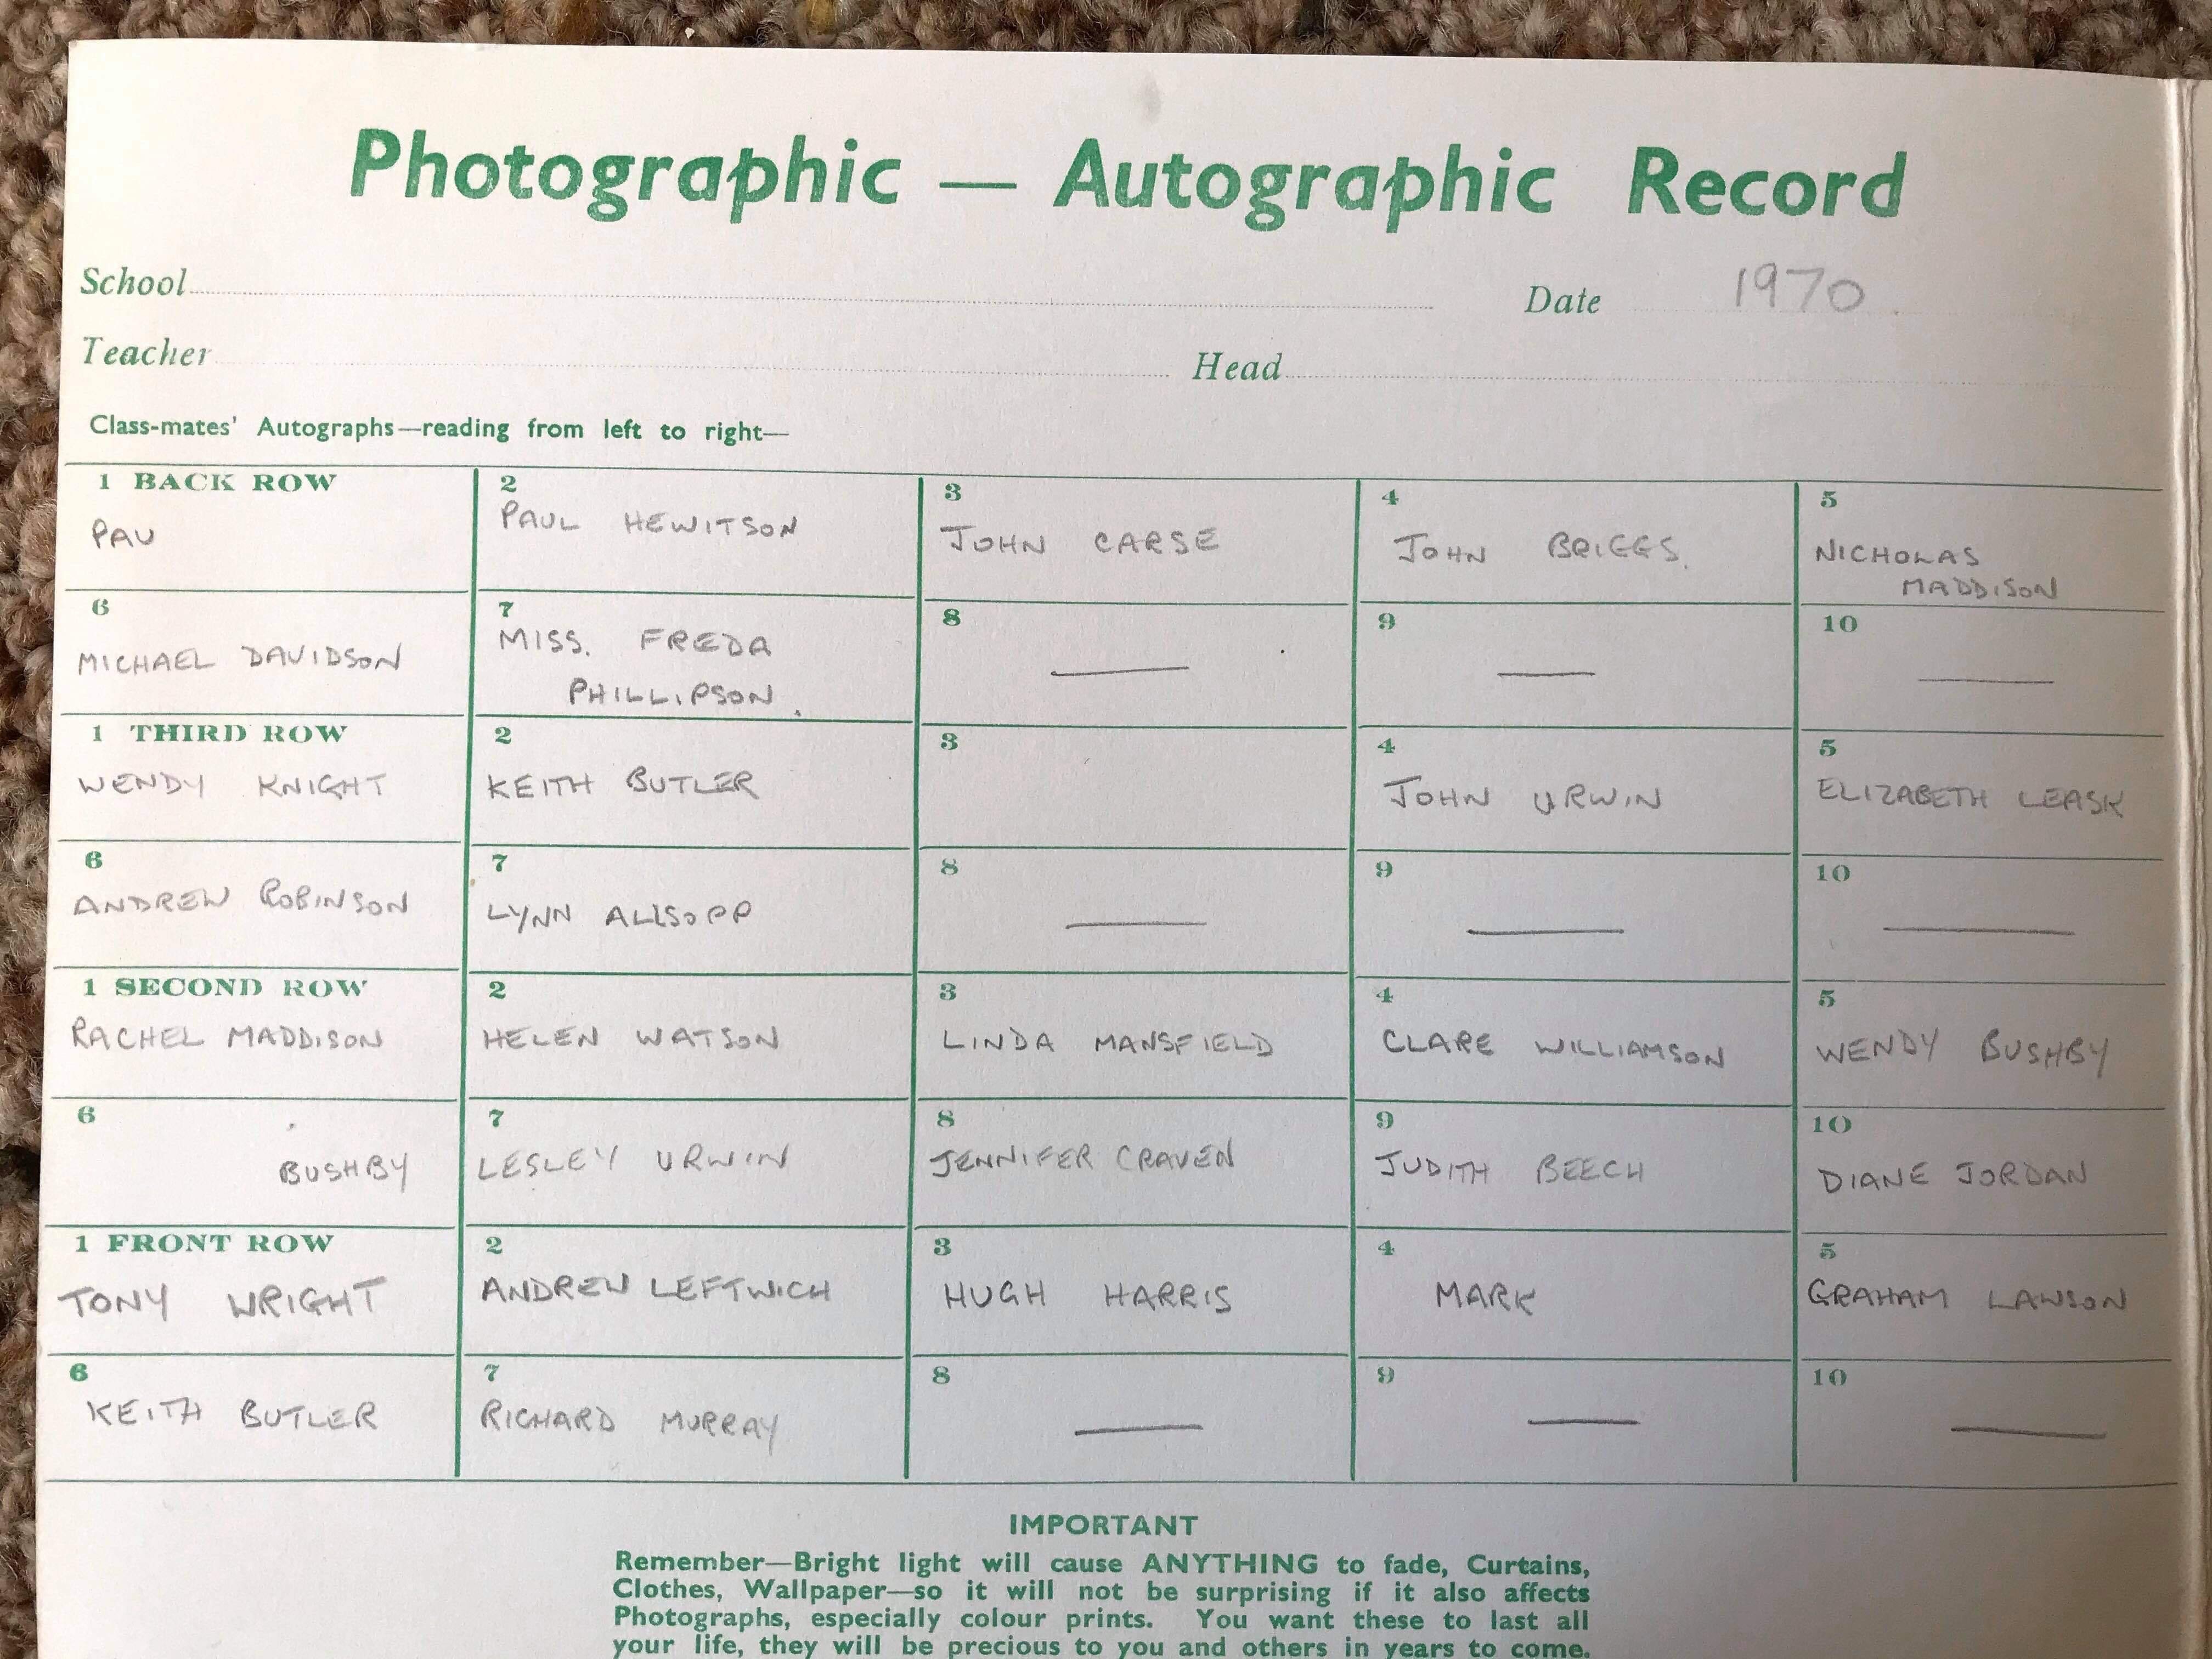 Photographic — Autographic Record
School
Date 1970
Teacher
Head
Class-mates' Autographs—reading from left to right—
1 BACK ROW
PAU
2
PAUL HEWITSON
3
JOHN CARSE
4
JOHN BRIGGS.
5
NICHOLAS
MADDISON
6
MICHAEL DAVIDSON
7
MISS. FREDA
PHILLIPSON.
8
—
9
—
10
—
1 THIRD ROW
WENDY KNIGHT
2
KEITH BUTLER
3
4
JOHN URWIN
5
ELIZABETH LEASK
6
ANDREW ROBINSON
7
LYNN ALLSOPP
8
—
9
—
10
—
1 SECOND ROW
RACHEL MADDISON
2
HELEN WATSON
3
LINDA MANSFIELD
4
CLARE WILLIAMSON
5
WENDY BUSHBY
6
BUSHBY
7
LESLEY URWIN
8
JENNIFER CRAVEN
9
JUDITH BEECH
10
DIANE JORDAN
1 FRONT ROW
TONY WRIGHT
2
ANDREW LEFTWICH
3
HUGH HARRIS
4
MARK
5
GRAHAM LAWSON
6
KEITH BUTLER
7
RICHARD MURRAY
8
—
9
—
10
—
IMPORTANT
Remember—Bright light will cause ANYTHING to fade, Curtains,
Clothes, Wallpaper—so it will not be surprising if it also affects
Photographs, especially colour prints. You want these to last all
your life, they will be precious to you and others in years to come.